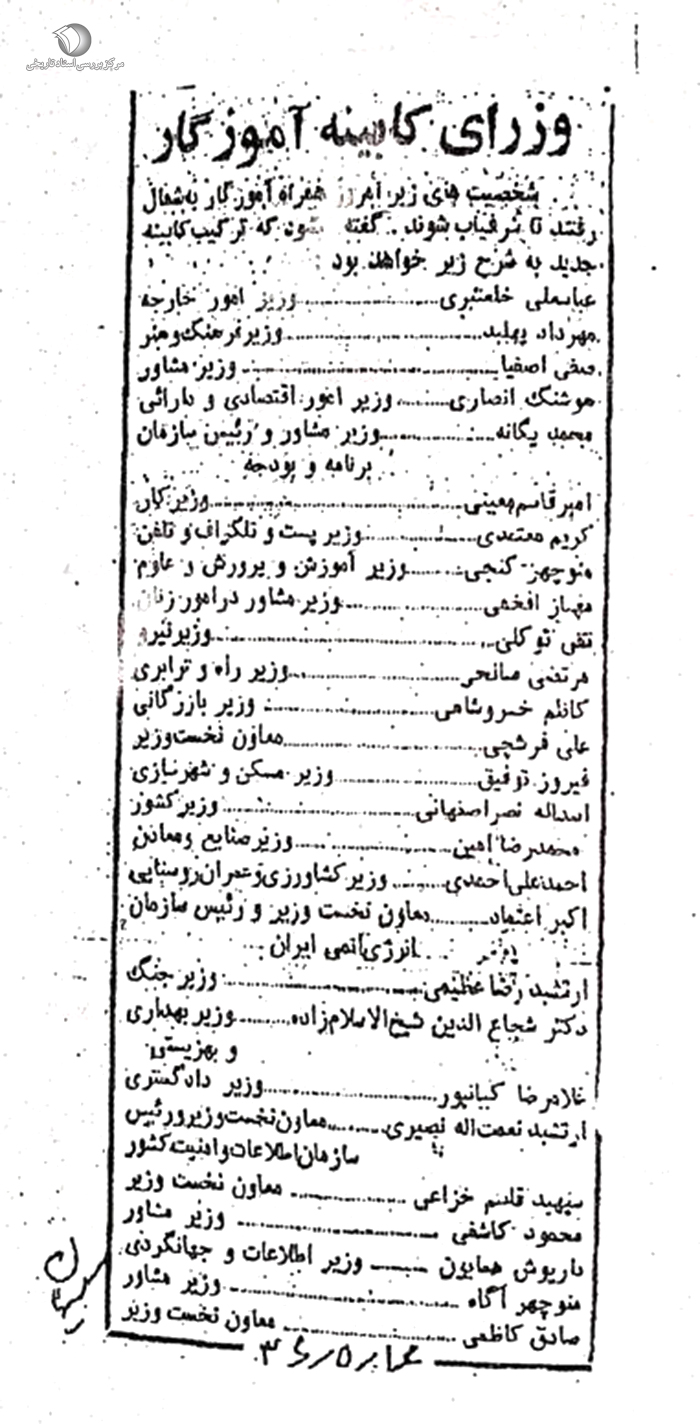 مرکز بررسی اسناد تاریخی
وزرای کابینه آموزگار
شخصیت های زیر امروز همراه آموزگار به شمال
رفتند تا شرفیاب شوند. گفته میشود که ترکیب کابینه
جدید به شرح زیر خواهد بود:
عباسعلی خلعتبری ........ وزیر امور خارجه
مهرداد پهلبد ........ وزیر فرهنگ و هنر
صفی اصفیا ........ وزیر مشاور
هوشنگ انصاری ........ وزیر امور اقتصادی و دارائی
محمد یگانه ........ وزیر مشاور و رئیس سازمان
برنامه و بودجه
امیر قاسم معینی ........ وزیر کار
کریم معتمدی ........ وزیر پست و تلگراف و تلفن
منوچهر گنجی ........ وزیر آموزش و پرورش و علوم
مهناز افخمی ........ وزیر مشاور در امور زنان
تقی توکلی ........ وزیر نیرو
مرتضی صالحی ........ وزیر راه و ترابری
کاظم خسروشاهی ........ وزیر بازرگانی
علی فرشچی ........ معاون نخست وزیر
فیروز توفیق ........ وزیر مسکن و شهرسازی
اسداله نصر اصفهانی ........ وزیر کشور
محمدرضا امین ........ وزیر صنایع و معادن
احمد علی احمدی ........ وزیر کشاورزی و عمران روستایی
اکبر اعتماد ........ معاون نخست وزیر و رئیس سازمان
انرژی اتمی ایران
ارتشبد رضا عظیمی ........ وزیر جنگ
دکتر شجاع الدین شیخ الاسلام زاده ........ وزیر بهداری
و بهزیستی
غلامرضا کیانپور ........ وزیر دادگستری
ارتشبد نعمت اله نصیری ........ معاون نخست وزیر و رئیس
سازمان اطلاعات و امنیت کشور
سپهبد قاسم خزاعی ........ معاون نخست وزیر
محمود کاشفی ........ وزیر مشاور
داریوش همایون ........ وزیر اطلاعات و جهانگردی
منوچهر آگاه ........ وزیر مشاور
صادق کاظمی ........ معاون نخست وزیر